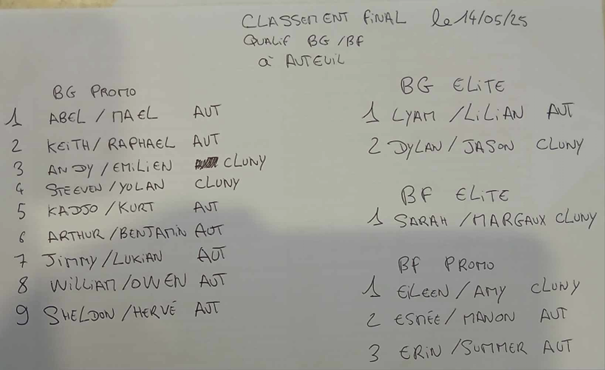 CLASSEMENT FINAL le 14/05/25
QUALIF BG/BF
à AUTEUIL
BG PROMO
1 ABEL/MAEL AUT
2 KEITH/RAPHAEL AUT
3 ANDY/EMILIEN CLUNY
4 STEEVEN/YOLAN CLUNY
5 KADJO/KURT AUT
6 ARTHUR/BENJAMIN AUT
7 JIMMY/LUKIAN AUT
8 WILLIAM/OWEN AUT
9 SHELDON/HERVÉ AUT
BG ELITE
1 LYAM/LILIAN AUT
2 DYLAN/JASON CLUNY
BF ELITE
1 SARAH/MARGAUX CLUNY
BF PROMO
1 EILEEN/AMY CLUNY
2 ESMÉE/MANON AUT
3 ERIN/SUMMER AUT